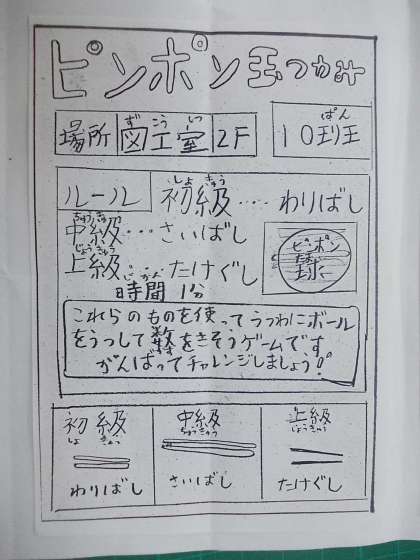 ピンポン玉つかみ
場所 図工室 2F
ずこうしつ
10班
ぱん
ルール
初級…わりばし
しょきゅう
中級…さいばし
ちゅうきゅう
上級…たけぐし
じょうきゅう
時間 1分
じかん
ピンポン
球
たま
これらのものを使ってうつわにボール
をうつして数をきそうゲームです
かず
がんばってチャレンジしましょう!!
初級
しょきゅう
わりばし
中級
ちゅうきゅう
さいばし
上級
じょうきゅう
たけぐし